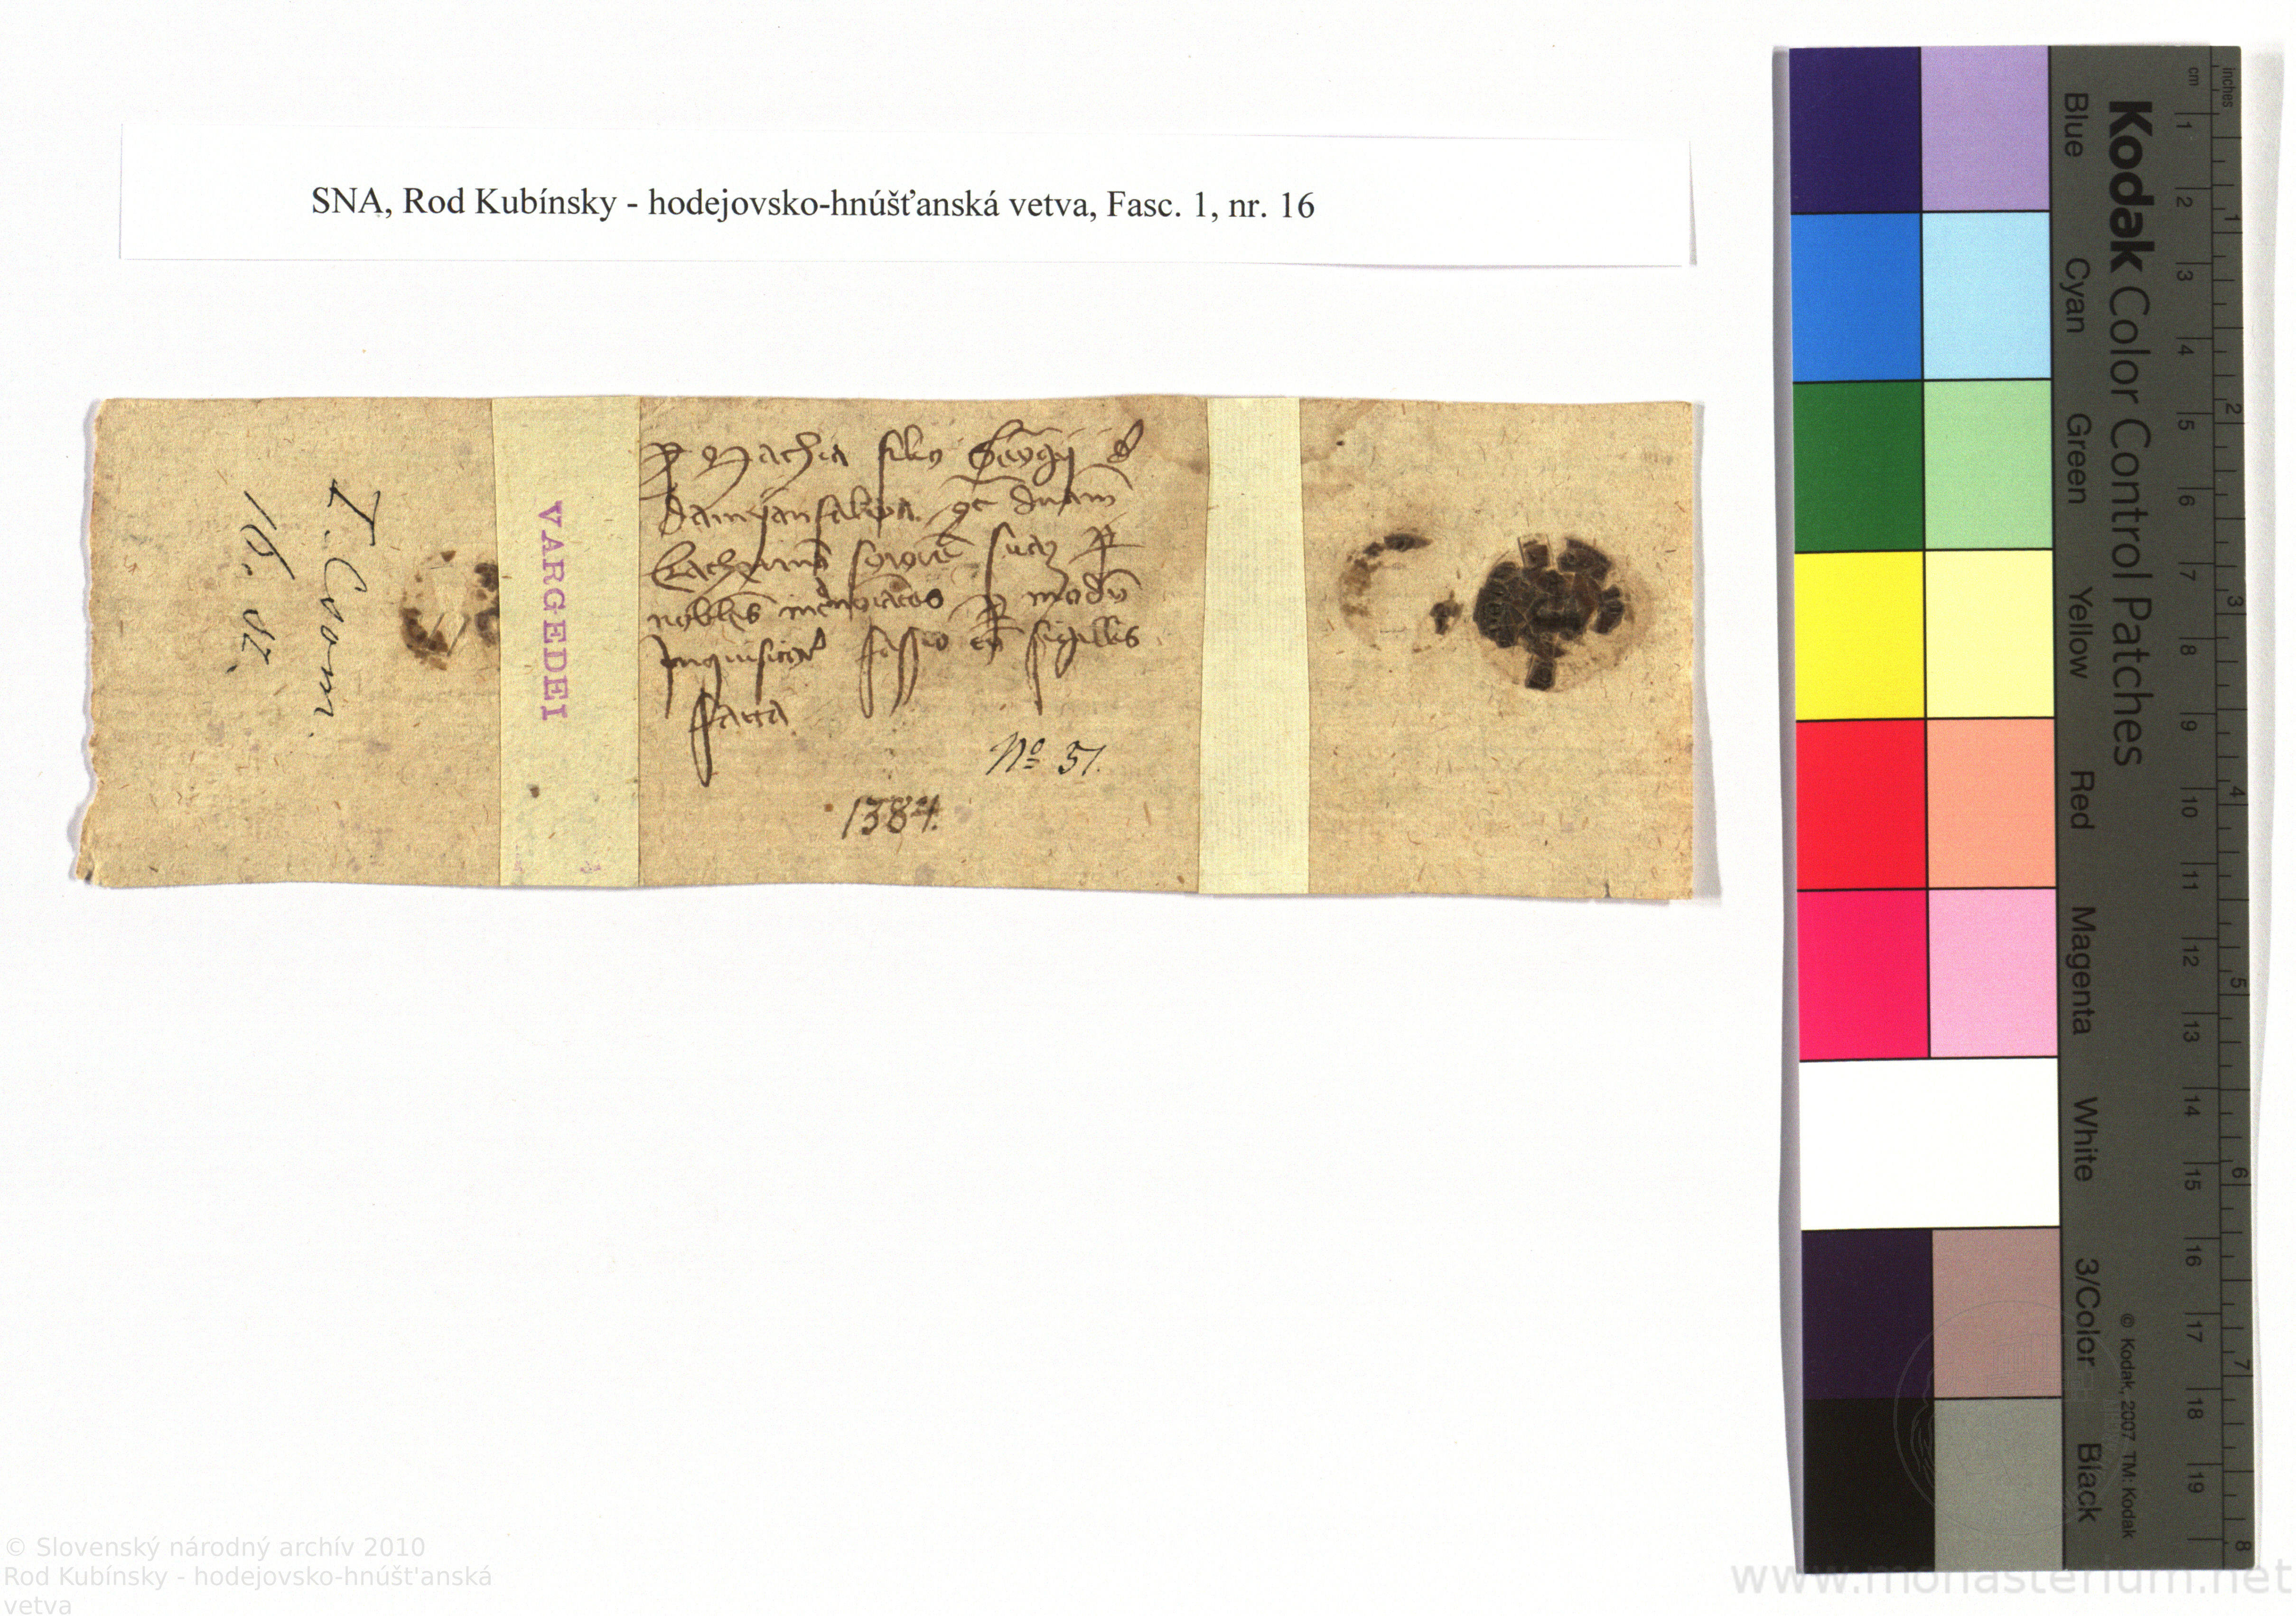 SNA, Rod Kubínsky - hodejovsko-hnúšťanská vetva, Fasc. 1, nr. 16
I. Crom.
16. sz.
VARGEDEI
p Mathia filio Georgÿ d
Damÿanfalwa
sororē suaȝ p
nobiles p modū
Inquisitor fassio cū sigillis
facta
Nº 51.
1384.
Kodak Color Control Patches
Blue Cyan Green Yellow Red Magenta White 3/Color Black
© Kodak, 2007 TM: Kodak
cm 1 2 3 4 5 6 7 8 9 10 11 12 13 14 15 16 17 18 19
inches 1 2 3 4 5 6 7 8
© Slovenský národný archív 2010
Rod Kubínsky - hodejovsko-hnúšt'anská
vetva
www.monasterium.net